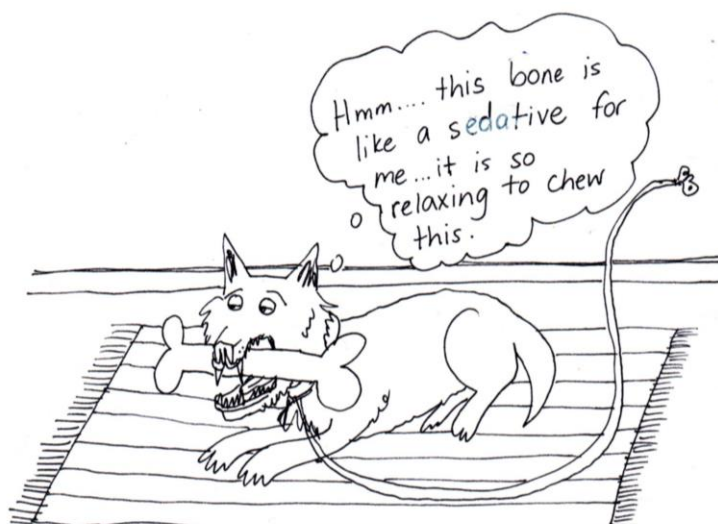 Hmm.... this bone is
like a sedative for
me...it is so
relaxing to chew
this.